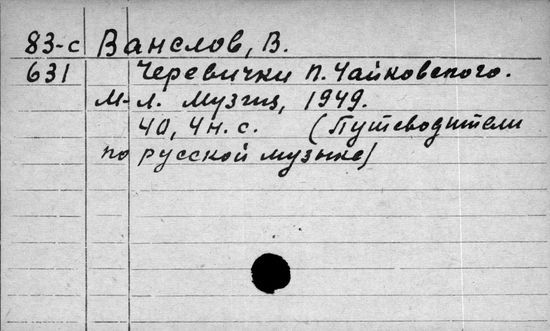 83-с Ванслов, В.
631 Черевички П. Чайковского.
М-Л. Музгиз, 1949.
40, 4н. с. (Путеводители
по русской музыке)